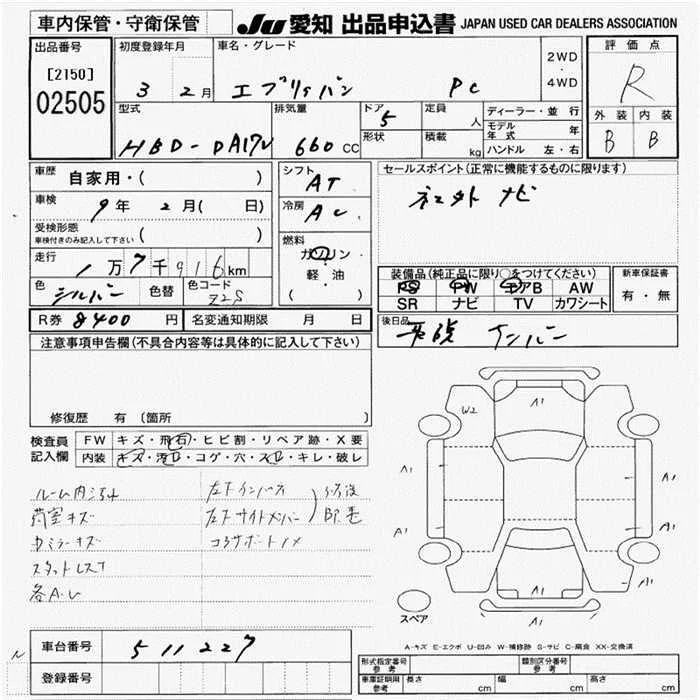 車内保管・守衛保管
JU 愛知 出品申込書 JAPAN USED CAR DEALERS ASSOCIATION
出品番号 初度登録年月 車名・グレード 2WD・4WD 評価点
[2150] 3 2月 エブリィバン PC R
02505 外装 内装
B B
型式 排気量 ドア 5 定員 人 ディーラー・並行
モデル年式 年
HBD-DA17V 660CC 形状 積載 kg ハンドル 左・右
車歴 自家用・( ) シフト AT セールスポイント(正常に機能するものに限ります)
車検 9年 2月( 日) 冷房 AC 社外 ナビ
受検形態 ( )
車検付きのみ記入して下さい
燃料 ガソリン・軽・油 ( )
走行 1万7千916km 装備品(純正品に限り○をつけてください) 新車保証書
色 シルバー 色替 色コード Z2S PS PW エアB AW 有・無
SR ナビ TV カワシート
R券 8400 円 名変通知期限 月 日 後日品
注意事項申告欄(不具合内容等は具体的に記入して下さい) ナンバー
修復歴 有 (箇所 )
検査員記入欄 FW キズ・飛石・ヒビ割・リペア跡・X要
内装 キズ・汚レ・コゲ・穴・スレ・キレ・破レ
荷室キズ
スタットレス
各A・U
W2 A1
A1 A1
A1 A1
A1 A1
A1
スペア
A-キズ E-エクボ U-凹み W-補修跡 S-サビ C-腐食 XX-交換済
車台番号 511227
登録番号
型式指定番号 参考 類別区分番号 参考
車庫証明用 参考 長さ cm 幅 cm 高さ cm